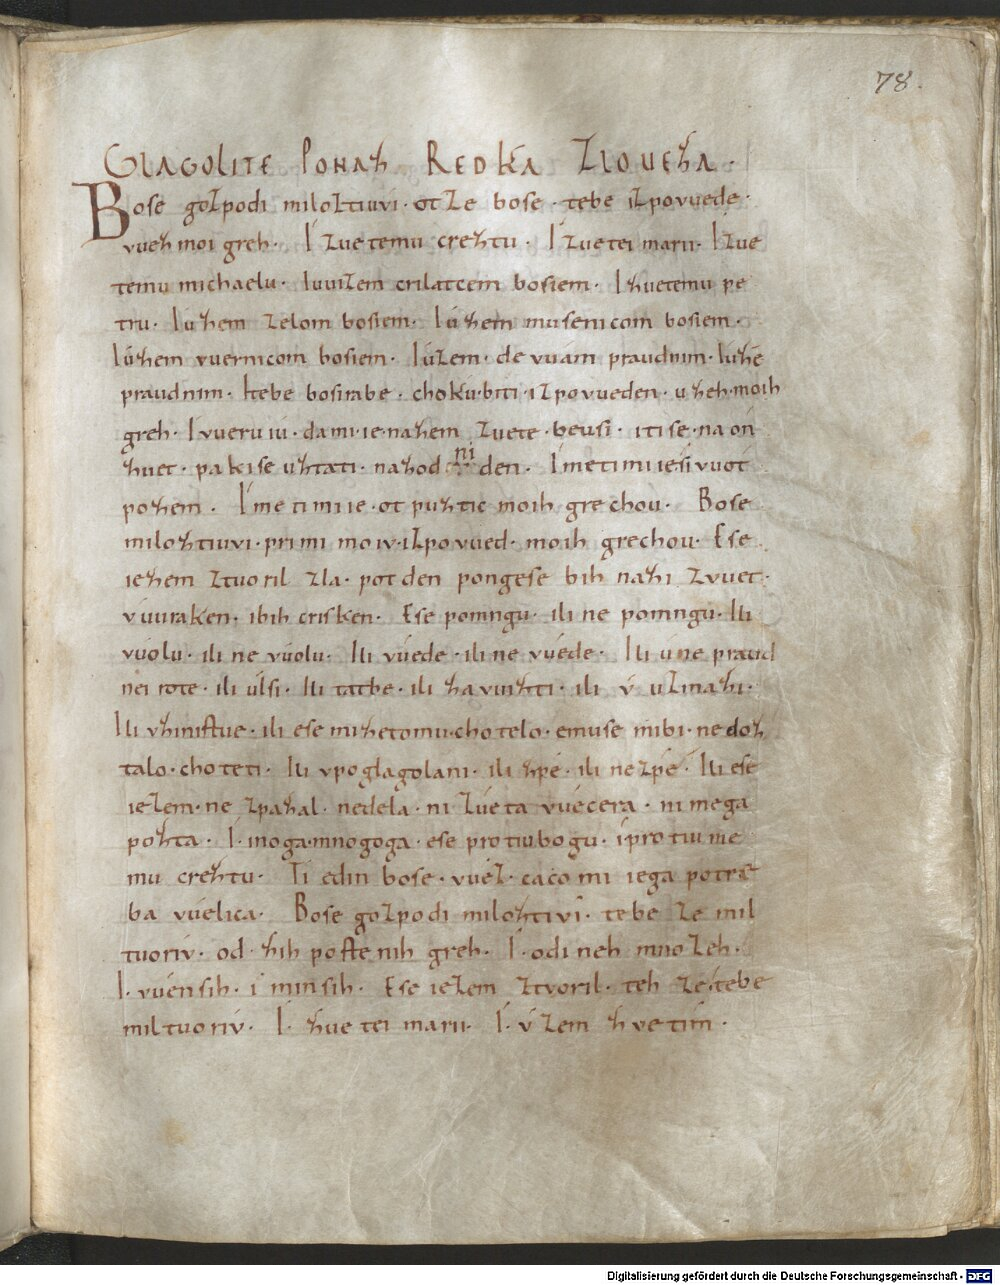 78.
GLAGOLITE PONAZ REDKA ZLOUEZA·
Bose gozpodi miloztiuvi· otze bose· tebe izpovuede·
vuez moi greh· I zuetemu creztu· I zuetei marii· Izue
temu michaelu· Iuuizem crilatcem bosiem· I zuetemu pe
tru· Iuzem zelom bosiem· Iuzem musenicom bosiem·
Iuzem vuernicom bosiem· Iuzem· devuám praudnim· Iuzé
praudnim· Itebe bosirabe· choku·biti· izpovueden· uzeh·moih
greh· I vueruiu· da mi·ie·nazem zuete· beusi· iti se· na on
zuet· pakise uztati· nazodni den· Ímetimiiesivuot
pozem· Ímetimiie· ot puztic moih grechou· Bose
miloztiuvi· primi moiv·izpovued· moih grechou· Ese
iezem ztuoril zla· pot den pongese bih nazi zvuet·
vúuraken· ibih crisken· Ese pomngu· ili ne pomngu· Ili
vúolu· ili ne vúolu· Ili vúede· ili ne vúede· Ili úne praud
nei rote· ili úlsi· Ili tatbe· ili zavuizti· ili v́ uzmazi·
Ili vzinistue· ili ese mizetomu·chotelo· emuse mibi· ne doz
talo· choteti· Ili vpoglagolani· ili zpé· ili nezpé· Ili ese
iezem· ne zpazal· nedela· ni zúeta vuécera· ni mega
pozta· I· inoga·mnogoga· ese protiubogu· i protiu me
mu creztu· Ti edin bose· vuéz· caco mi iega potrē
ba vúelica· Bose gozpodi miloztivi· tebe ze mil
tuoriv· od zih postenih greh· I· odi neh mnozeh·
I· vúensih· i minsih· Ese iezem ztvoril· teh ze·tebe
miltuoriv· I· zuetei marii· I· v́zem zvetím·
Digitalisierung gefördert durch die Deutsche Forschungsgemeinschaft - DFG